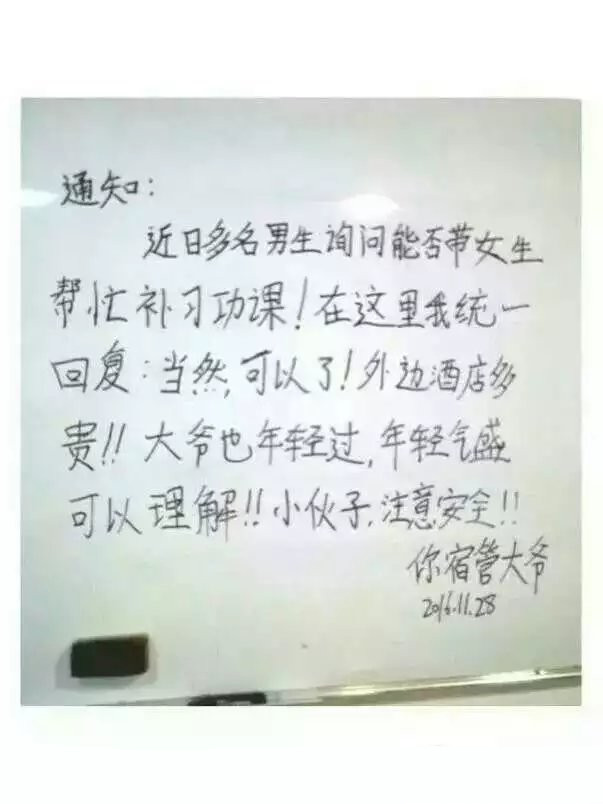 通知:
近日多名男生询问能否带女生
帮忙补习功课!在这里我统一
回复:当然,可以了!外边酒店多
贵!!大爷也年轻过,年轻气盛
可以理解!!小伙子,注意安全!!
你宿管大爷
2016.11.28